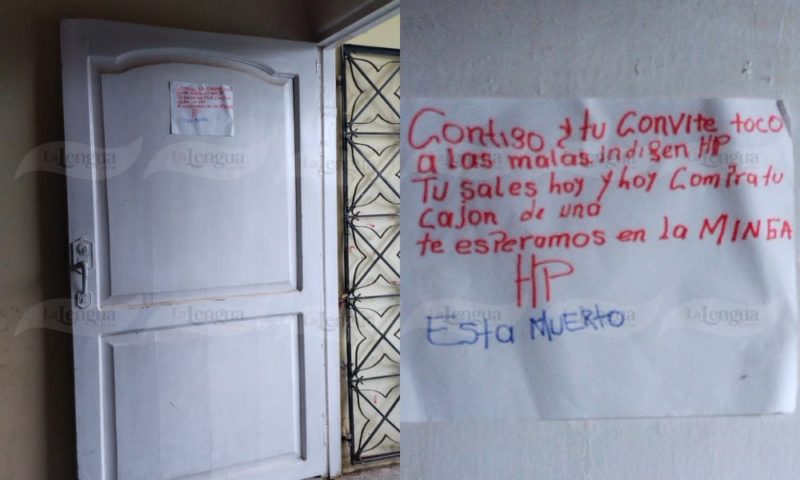 Contigo y tu Convite toco
a las malas indigen HP
Tu sales hoy y hoy Compra tu
cajon de una
te esperamos en la MINGA
HP
Esta MUERTO
LaLengua
LaLengua
LaLengua
LaLengua
LaLengua
LaLengua
LaLengua
LaLengua